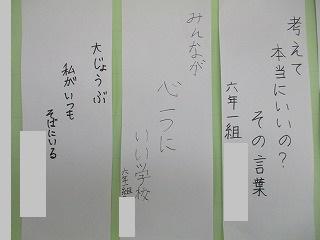 考えて
本当にいいの？
その言葉
六年一組
みんなが
心一つに
いい学校
六年一組
大じょうぶ
私がいつも
そばにいる